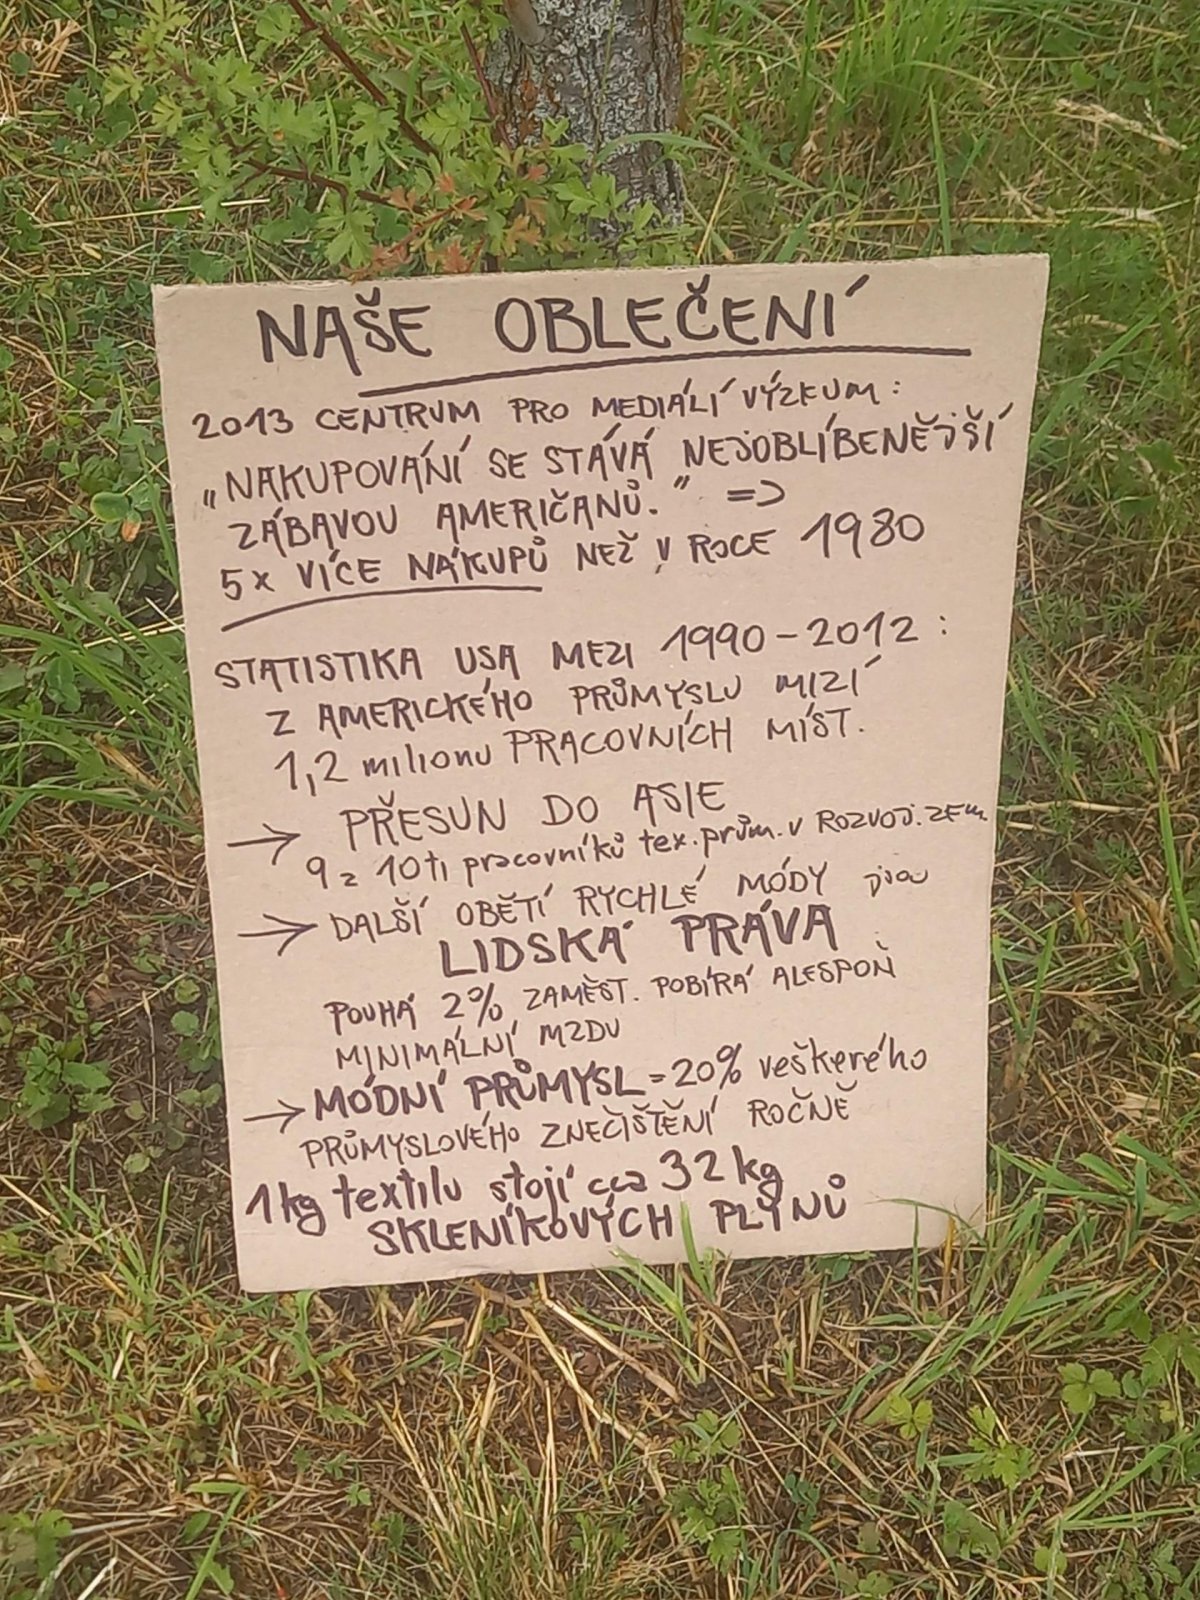 NAŠE OBLEČENÍ
2013 CENTRUM PRO MEDIÁLÍ VÝZKUM:
„NAKUPOVÁNÍ SE STÁVÁ NEJOBLÍBENĚJŠÍ
ZÁBAVOU AMERIČANŮ." =>
5x VÍCE NÁKUPŮ NEŽ V ROCE 1980
STATISTIKA USA MEZI 1990-2012:
Z AMERICKÉHO PRŮMYSLU MIZÍ
1,2 milionu PRACOVNÍCH MÍST.
→ PŘESUN DO ASIE
9 z 10ti pracovníků tex. prům. v ROZVOJ. ZEM.
→ DALŠÍ OBĚTÍ RYCHLÉ MÓDY jsou
LIDSKÁ PRÁVA
POUHÁ 2% ZAMĚST. POBÍRÁ ALESPOŇ
MINIMÁLNÍ MZDU
→ MÓDNÍ PRŮMYSL = 20% veškerého
PRŮMYSLOVÉHO ZNEČIŠTĚNÍ ROČNĚ
1kg textilu stojí cca 32kg
SKLENÍKOVÝCH PLYNŮ